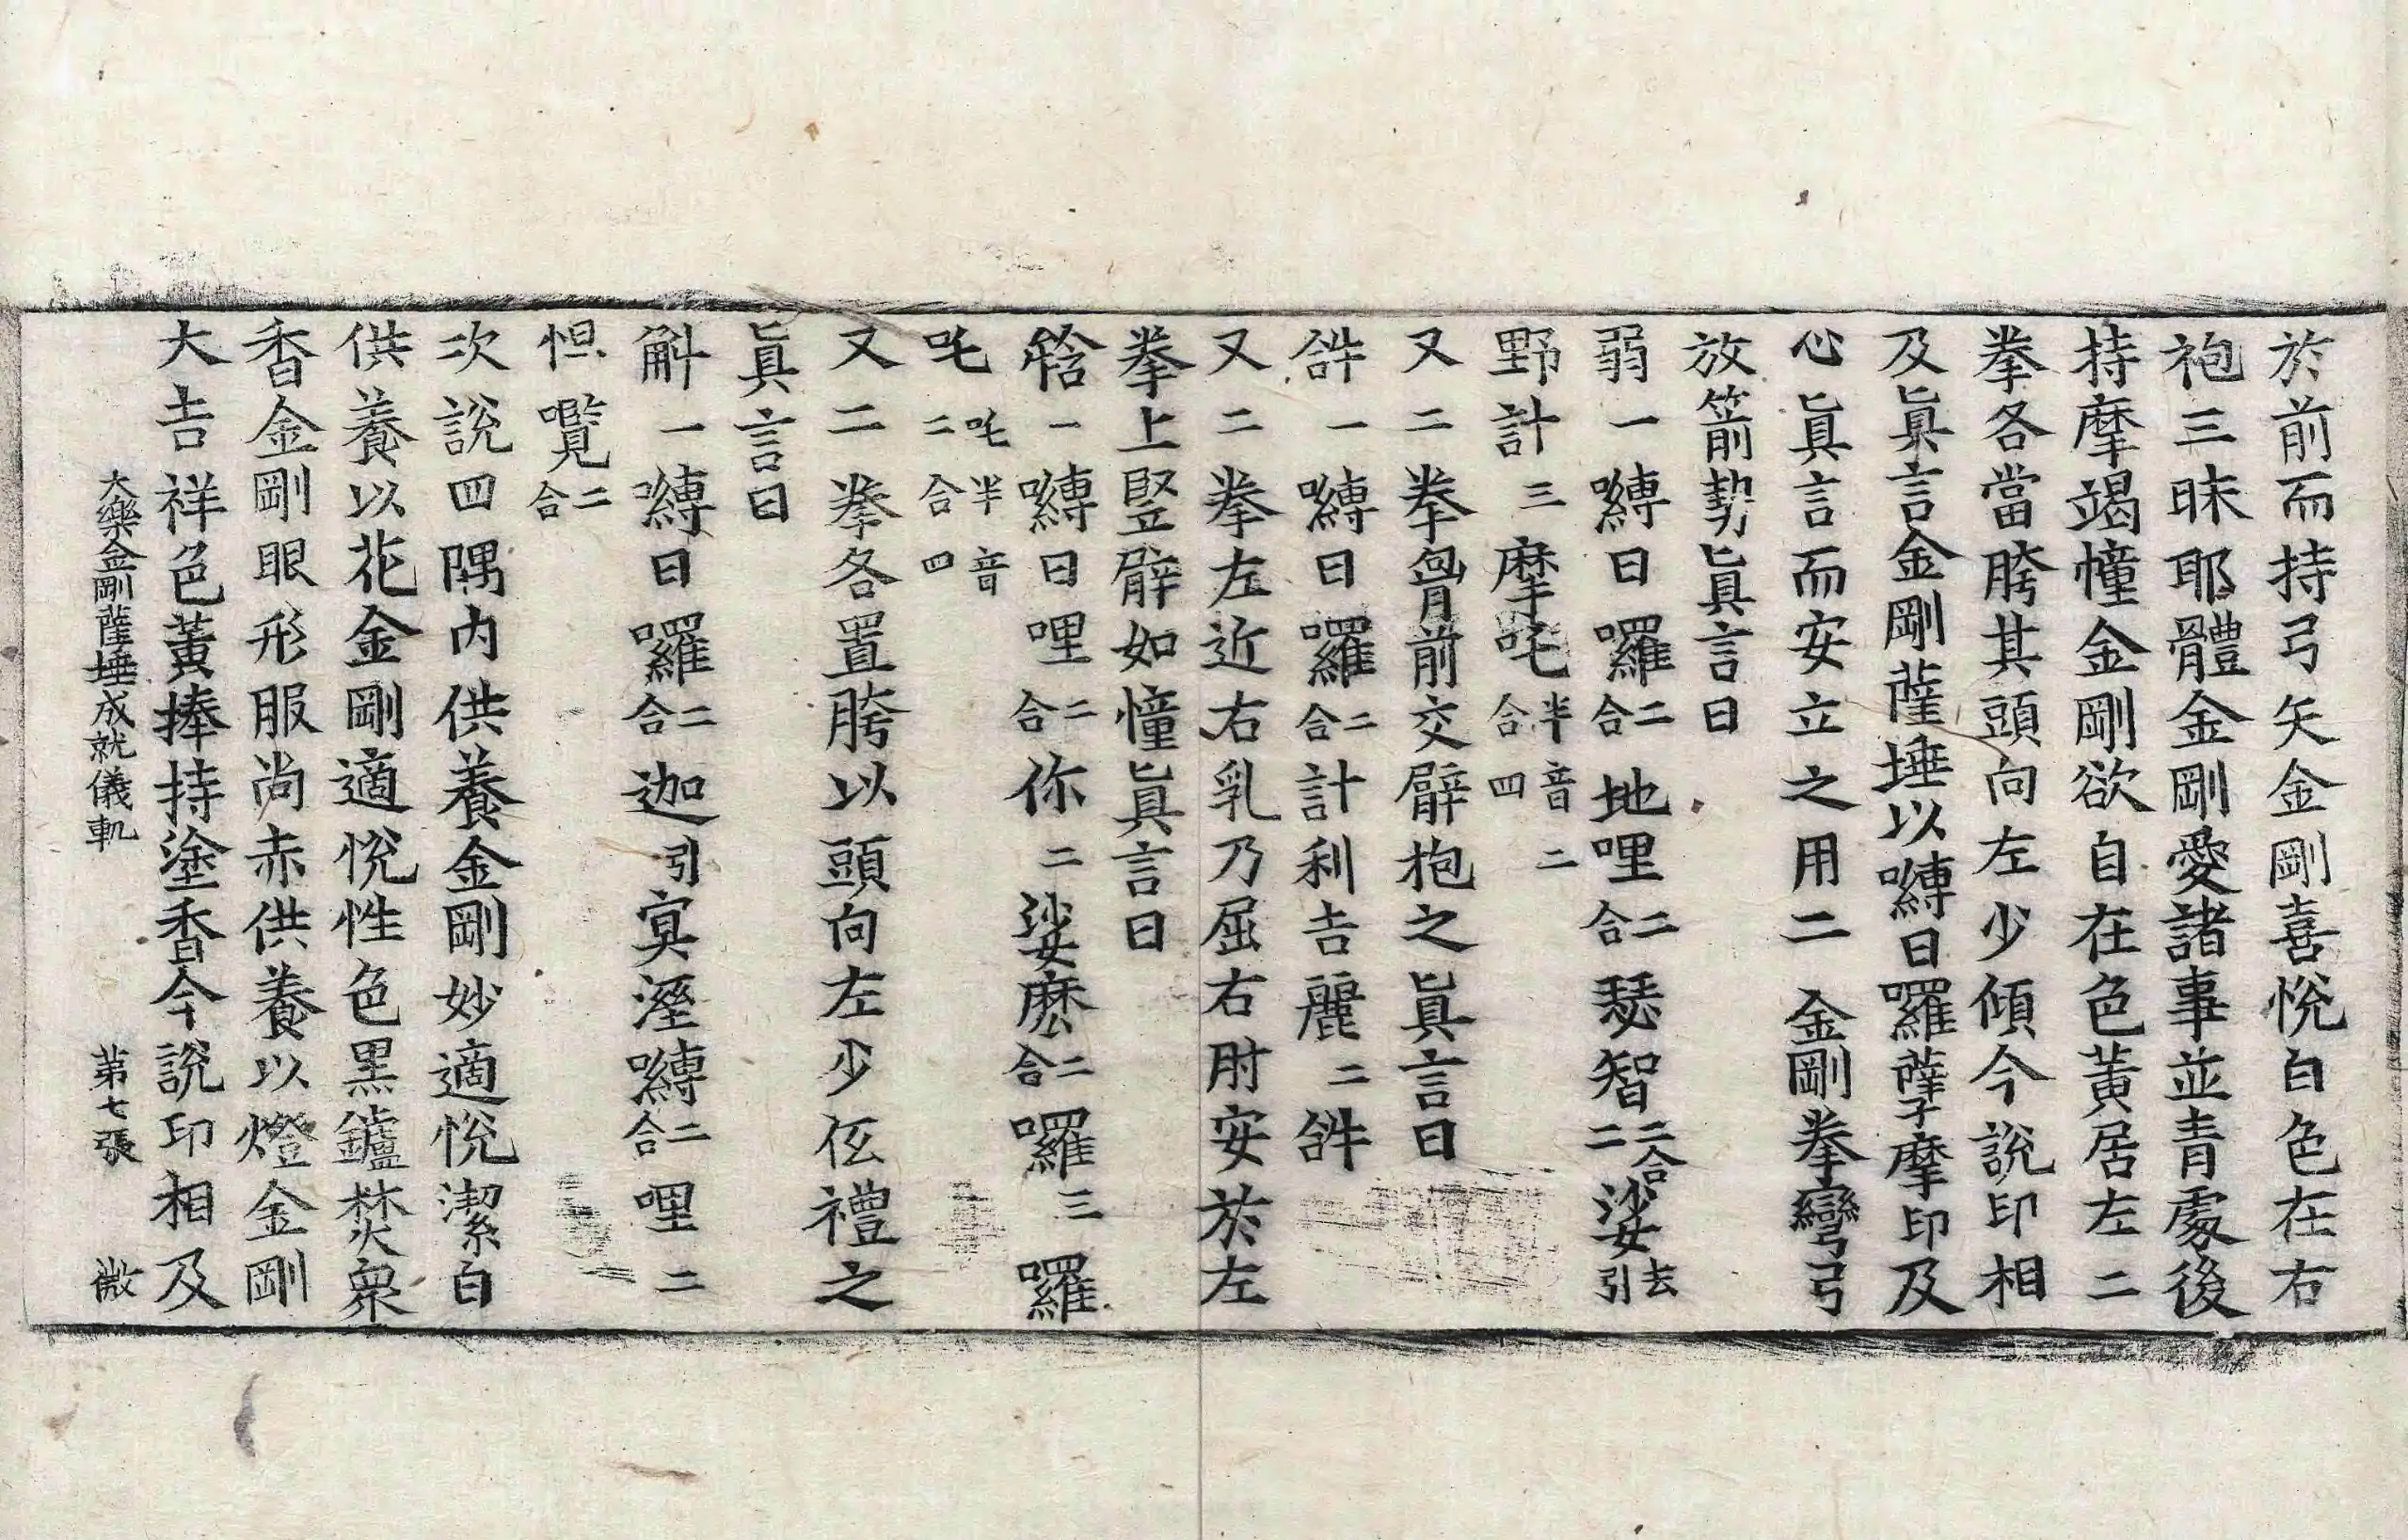 於前而持弓矢金剛喜悅白色在右
袍三昧耶體金剛愛諸事並青處後
持摩竭幢金剛欲自在色黃居左二
拳各當胯其頭向左少傾今說印相
及眞言金剛薩埵以嚩日囉薩摩印及
心眞言而安立之用二金剛拳彎弓
放箭勢眞言曰
弱一嚩日囉二合地哩二合瑟智二合二娑去引
野計三摩吒半音二合四
又二拳胷前交臂抱之眞言曰
𤙖一嚩日囉二合計利吉麗二𤙖
又二拳左近右乳乃屈右肘安於左
拳上竪臂如幢眞言曰
𤚥一嚩日哩二合你二娑麽二合囉三囉
吒吒半音二合四
又二拳各置胯以頭向左少低禮之
眞言曰
斛一嚩日囉二合迦引冥溼嚩二合哩二
怛囕二合
次說四隅內供養金剛妙適悅潔白
供養以花金剛適悅性色黑鑪焚衆
香金剛眼形服尚赤供養以燈金剛
大吉祥色黃捧持塗香今說印相及
大樂金剛薩埵成就儀軌 第七張 微